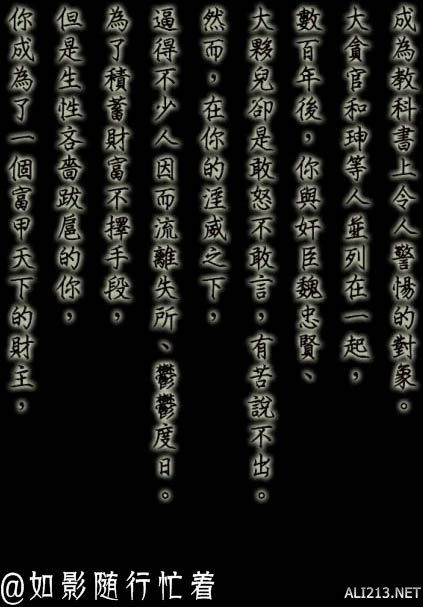 你成為了一個富甲天下的財主，
但是生性吝嗇跋扈的你，
為了積蓄財富不擇手段，
逼得不少人因而流離失所、鬱鬱度日。
然而，在你的淫威之下，
大夥兒卻是敢怒不敢言，有苦說不出。
數百年後，你與奸臣魏忠賢、
大貪官和珅等人並列在一起，
成為教科書上令人警惕的對象。
@如影随行忙着
ALI213.NET